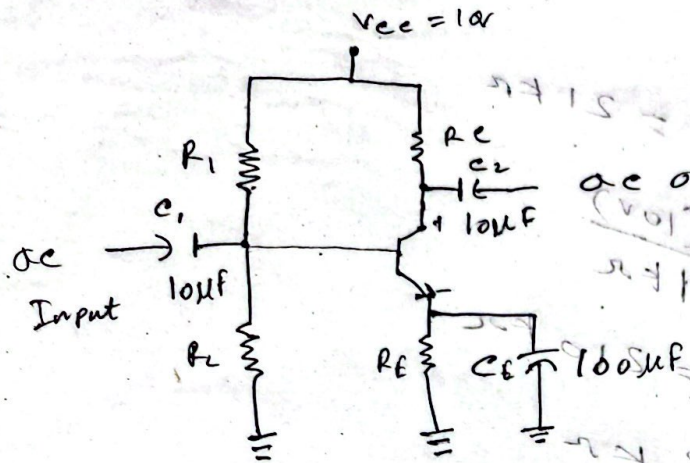 Vcc = 10v
R1
Rc
C2
ac o
10μF
C1
ac
10μF
Input
R2
RE
CE
100μF